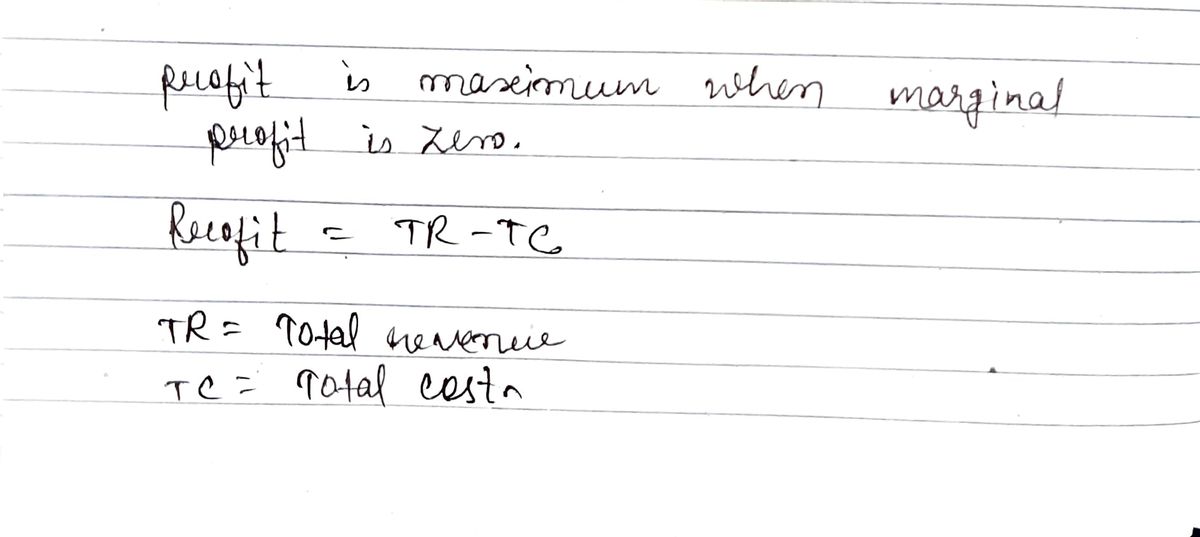 profit is maximum when marginal
profit is zero.
Profit = TR - TC
TR = Total revenue
TC = Total cost